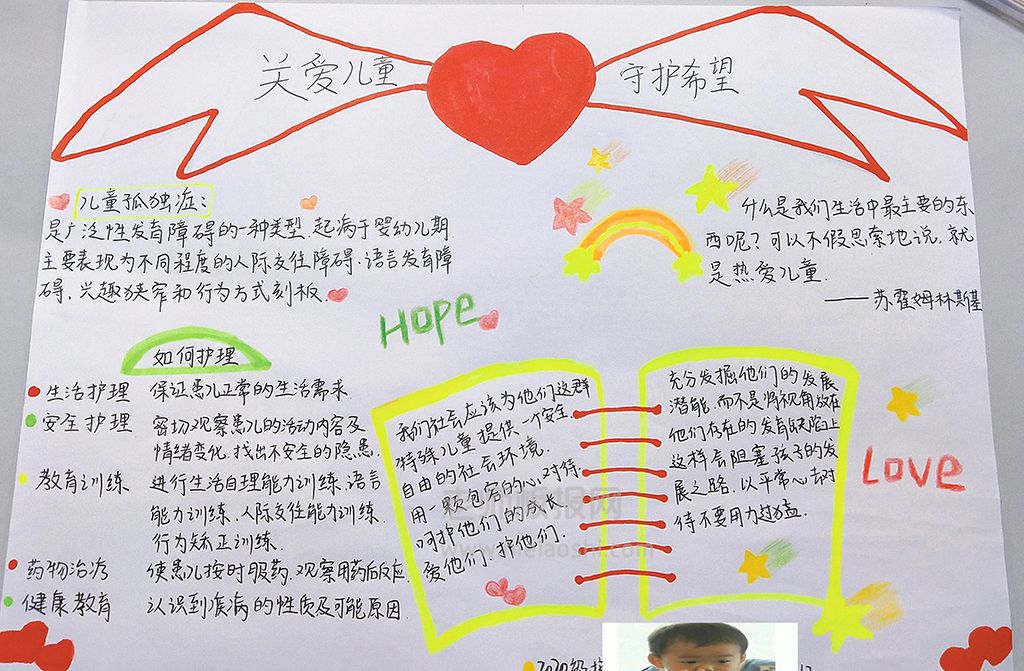 关爱儿童
守护希望
儿童孤独症:
是广泛性发育障碍的一种类型.起病于婴幼儿期
主要表现为不同程度的人际交往障碍.语言发育障
碍.兴趣狭窄和行为方式刻板.
什么是我们生活中最主要的东
西呢?可以不假思索地说,就
是热爱儿童.
——苏霍姆林斯基
HOPE
如何护理
生活护理 保证患儿正常的生活需求
安全护理 密切观察患儿的活动内容及
情绪变化.找出不安全的隐患.
教育训练 进行生活自理能力训练.语言
能力训练.人际交往能力训练.
行为矫正训练.
药物治疗 使患儿按时服药.观察用药后反应.
健康教育 认识到疾病的性质及可能原因
我们社会应该为他们这群
特殊儿童提供一个安全.
自由的社会环境.
用一颗包容的心对待.
呵护他们的成长
爱他们.护他们.
充分发掘他们的发展
潜能.而不是将视角放在
他们存在的发育缺陷上
这样会阻塞孩子的发
展之路.以平常心去对
待不要用力过猛.
Love
2020级